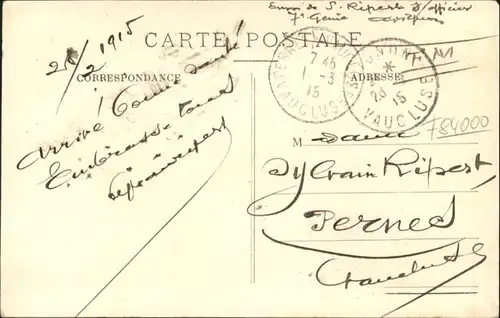 Envoi de S. Ripert S/officier
7e Génie Avignon
CARTE POSTALE
28/2 1915
CORRESPONDANCE
ADRESSE
7 45
1 - 3
15
VAUCLUSE
*
28
15
VAUCLUSE
F M
784000
Arrivé bonne santé
Embrasse tous
Ripert
Madame
Sylvain Ripert
Pernes
Vaucluse